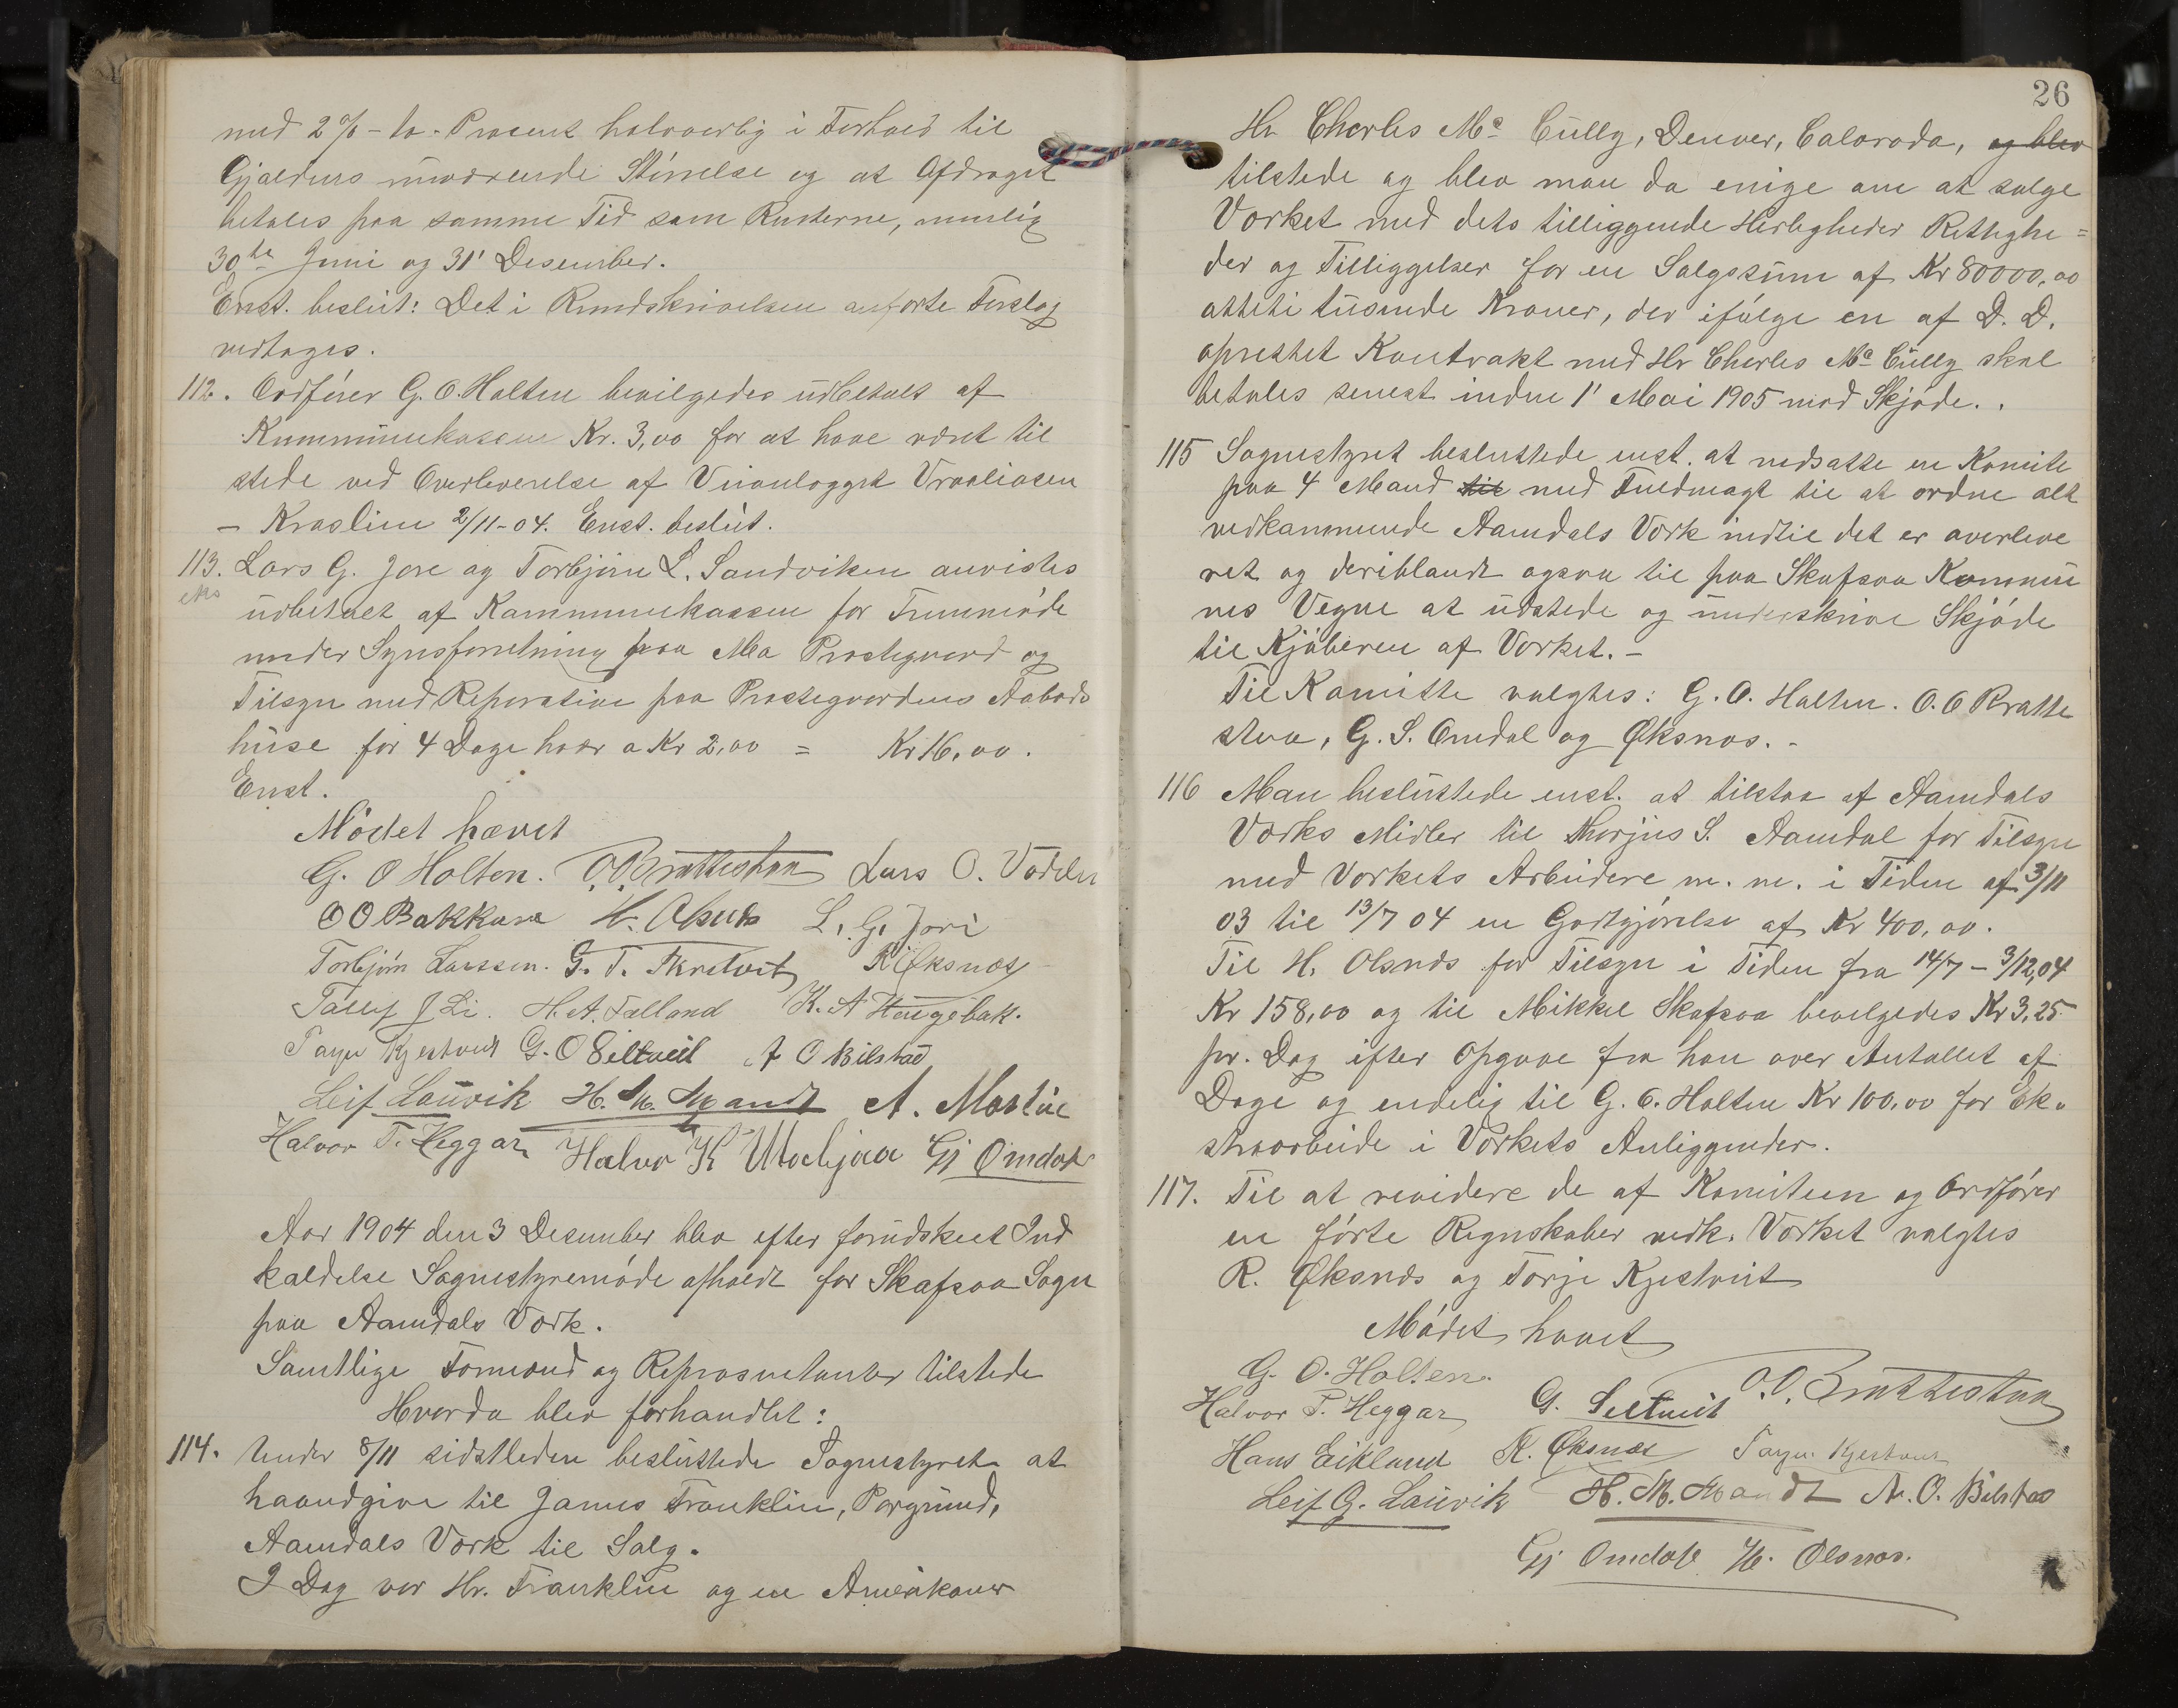 med 2 % - to - Prosent halvaarlig i Forhold til
Gjældens nuværende Størrelse og at Afdraget
betales paa samme Tid som Renterne, nemlig
30te Juni og 31' Desember.
Enst. beslut: Det i Rundskrivelsen anførte Forslag
vedtages.
112. Ordfører G. O. Holten bevilgedes udbetalt af
Kommunekassen Kr. 3,00 for at have været til
stede ved Overleverelse af Veianlægget Vraaliosen
- Kraslien 2/11-04. Enst. beslut.
113. Lars G. Jore og Torbjørn L. Sandviken anvistes
eks
udbetalt af Kommunekassen for Fremmøde
under Synsforretning paa Mo Prestegaard og
Tilsyn med Reparation paa Prestegaardens Aabods
huse for 4 Dage hver a Kr 2,00 = Kr 16,00.
Enst.
Mødet hævet
G. O Holten. O. O. Brattestaa Lars O. Vådder
O O Bakkane H. Olsnes L. G. Jori
Torbjørn Larssen. G. T. R Øksnæs
J Li. H. A. Falland K. A Haugebak.
Kjestveit G. O Seltveit A O Bilstad
Leif Lauvik H. M. Mandt A. Mostue
Halvor T. Heggar Halvor K Utochjaa Gj Omdal
Aar 1904 den 3 Desember blev efter forudskeet Ind
kaldelse Sognestyremøde afholdt for Skafsaa Sogn
paa Aamdals Værk.
Samtlige Formænd og Repræsentanter tilstede
Hvorda blev forhandlet:
114. Under 8/11 sidstleden besluttede Sognestyret at
haandgive til James Franklin, Porgrund,
Aamdals Værk til Salg.
I Dag var Hr. Franklin og en Amerikaner
26
Hr Charles Mc Cully, Denver, Caloroda, og blev
tilstede og blev man da enige om at sælge
Værket med dets tilliggende Herligheder Rettighe=
der og Tilliggelser for en Salgssum af Kr 80000,00
otteti tusende Kroner, der ifølge en af D. D.
oprettet Kontrakt med Hr Charles Mc Cully skal
betales senest inden 1' Mai 1905 mod Skjøde.
115 Sognestyret besluttede enst. at nedsætte en Komite
paa 4 Mand til med Fuldmagt til at ordne alt
vedkommende Aamdals Værk indtil det er overleve
ret og deriblandt ogsaa til paa Skafsaa Kommu
nes Vegne at udstede og underskrive Skjøde
til Kjøberen af Værket. -
Til Komitte valgtes: G. O. Holten. O. O Bratte
staa, G. S. Omdal og Øksnæs. -
116 Man besluttede enst. at tilstaa af Aamdals
Værks Midler til Thorjus S. Aamdal for Tilsyn
med Værkets Arbeidere m. m. i Tiden af 3/11
03 til 13/7 04 en Godtgjørelse af Kr 400,00.
Til H. Olsnæs for Tilsyn i Tiden fra 14/7 - 3/12,04
Kr 158,00 og til Mikkel Skafsaa bevilgedes Kr 3,25
pr. Dag efter Opgave fra han over Antallet af
Dage og endelig til G. O. Holten Kr 100,00 for Ek-
straarbeide i Værkets Anliggender.
117. Til at revidere de af Komiteen og Ordfører
en førte Regnskaber vedk. Værket valgtes
R. Øksnæs og Torje Kjestveit
Mødet hævet
G. O. Holten.
Halvor T. Heggar G. Seltveit O. O. Brattestaa
Hans Eikland R. Øksnæs Kjestveit
Leif G. Lauvik H. M. Mandt A. O. Bilstad
Gj Omdal H. Olsnæs.